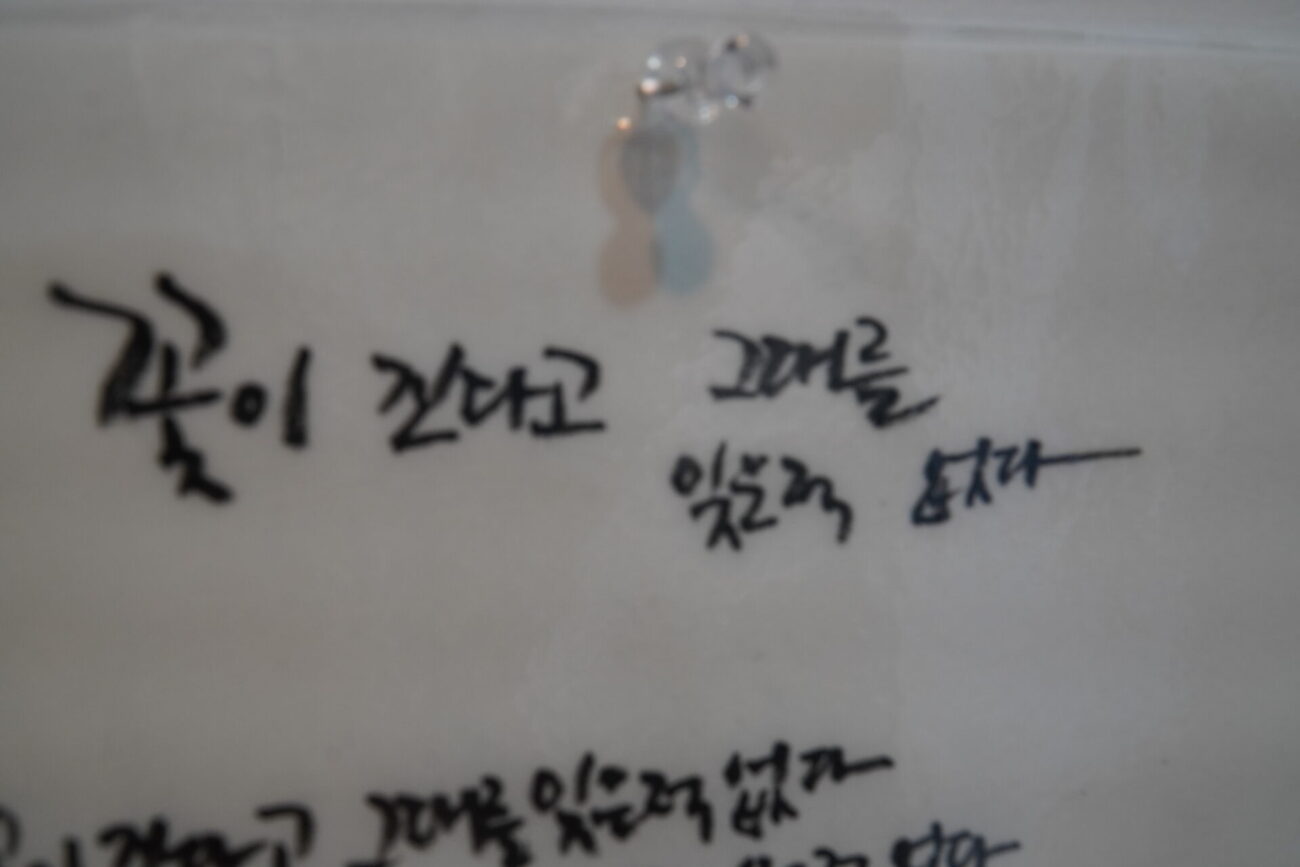 꽃이 진다고 그대를
잊은적 없다
진다고 그대를 잊은적 없다
없다